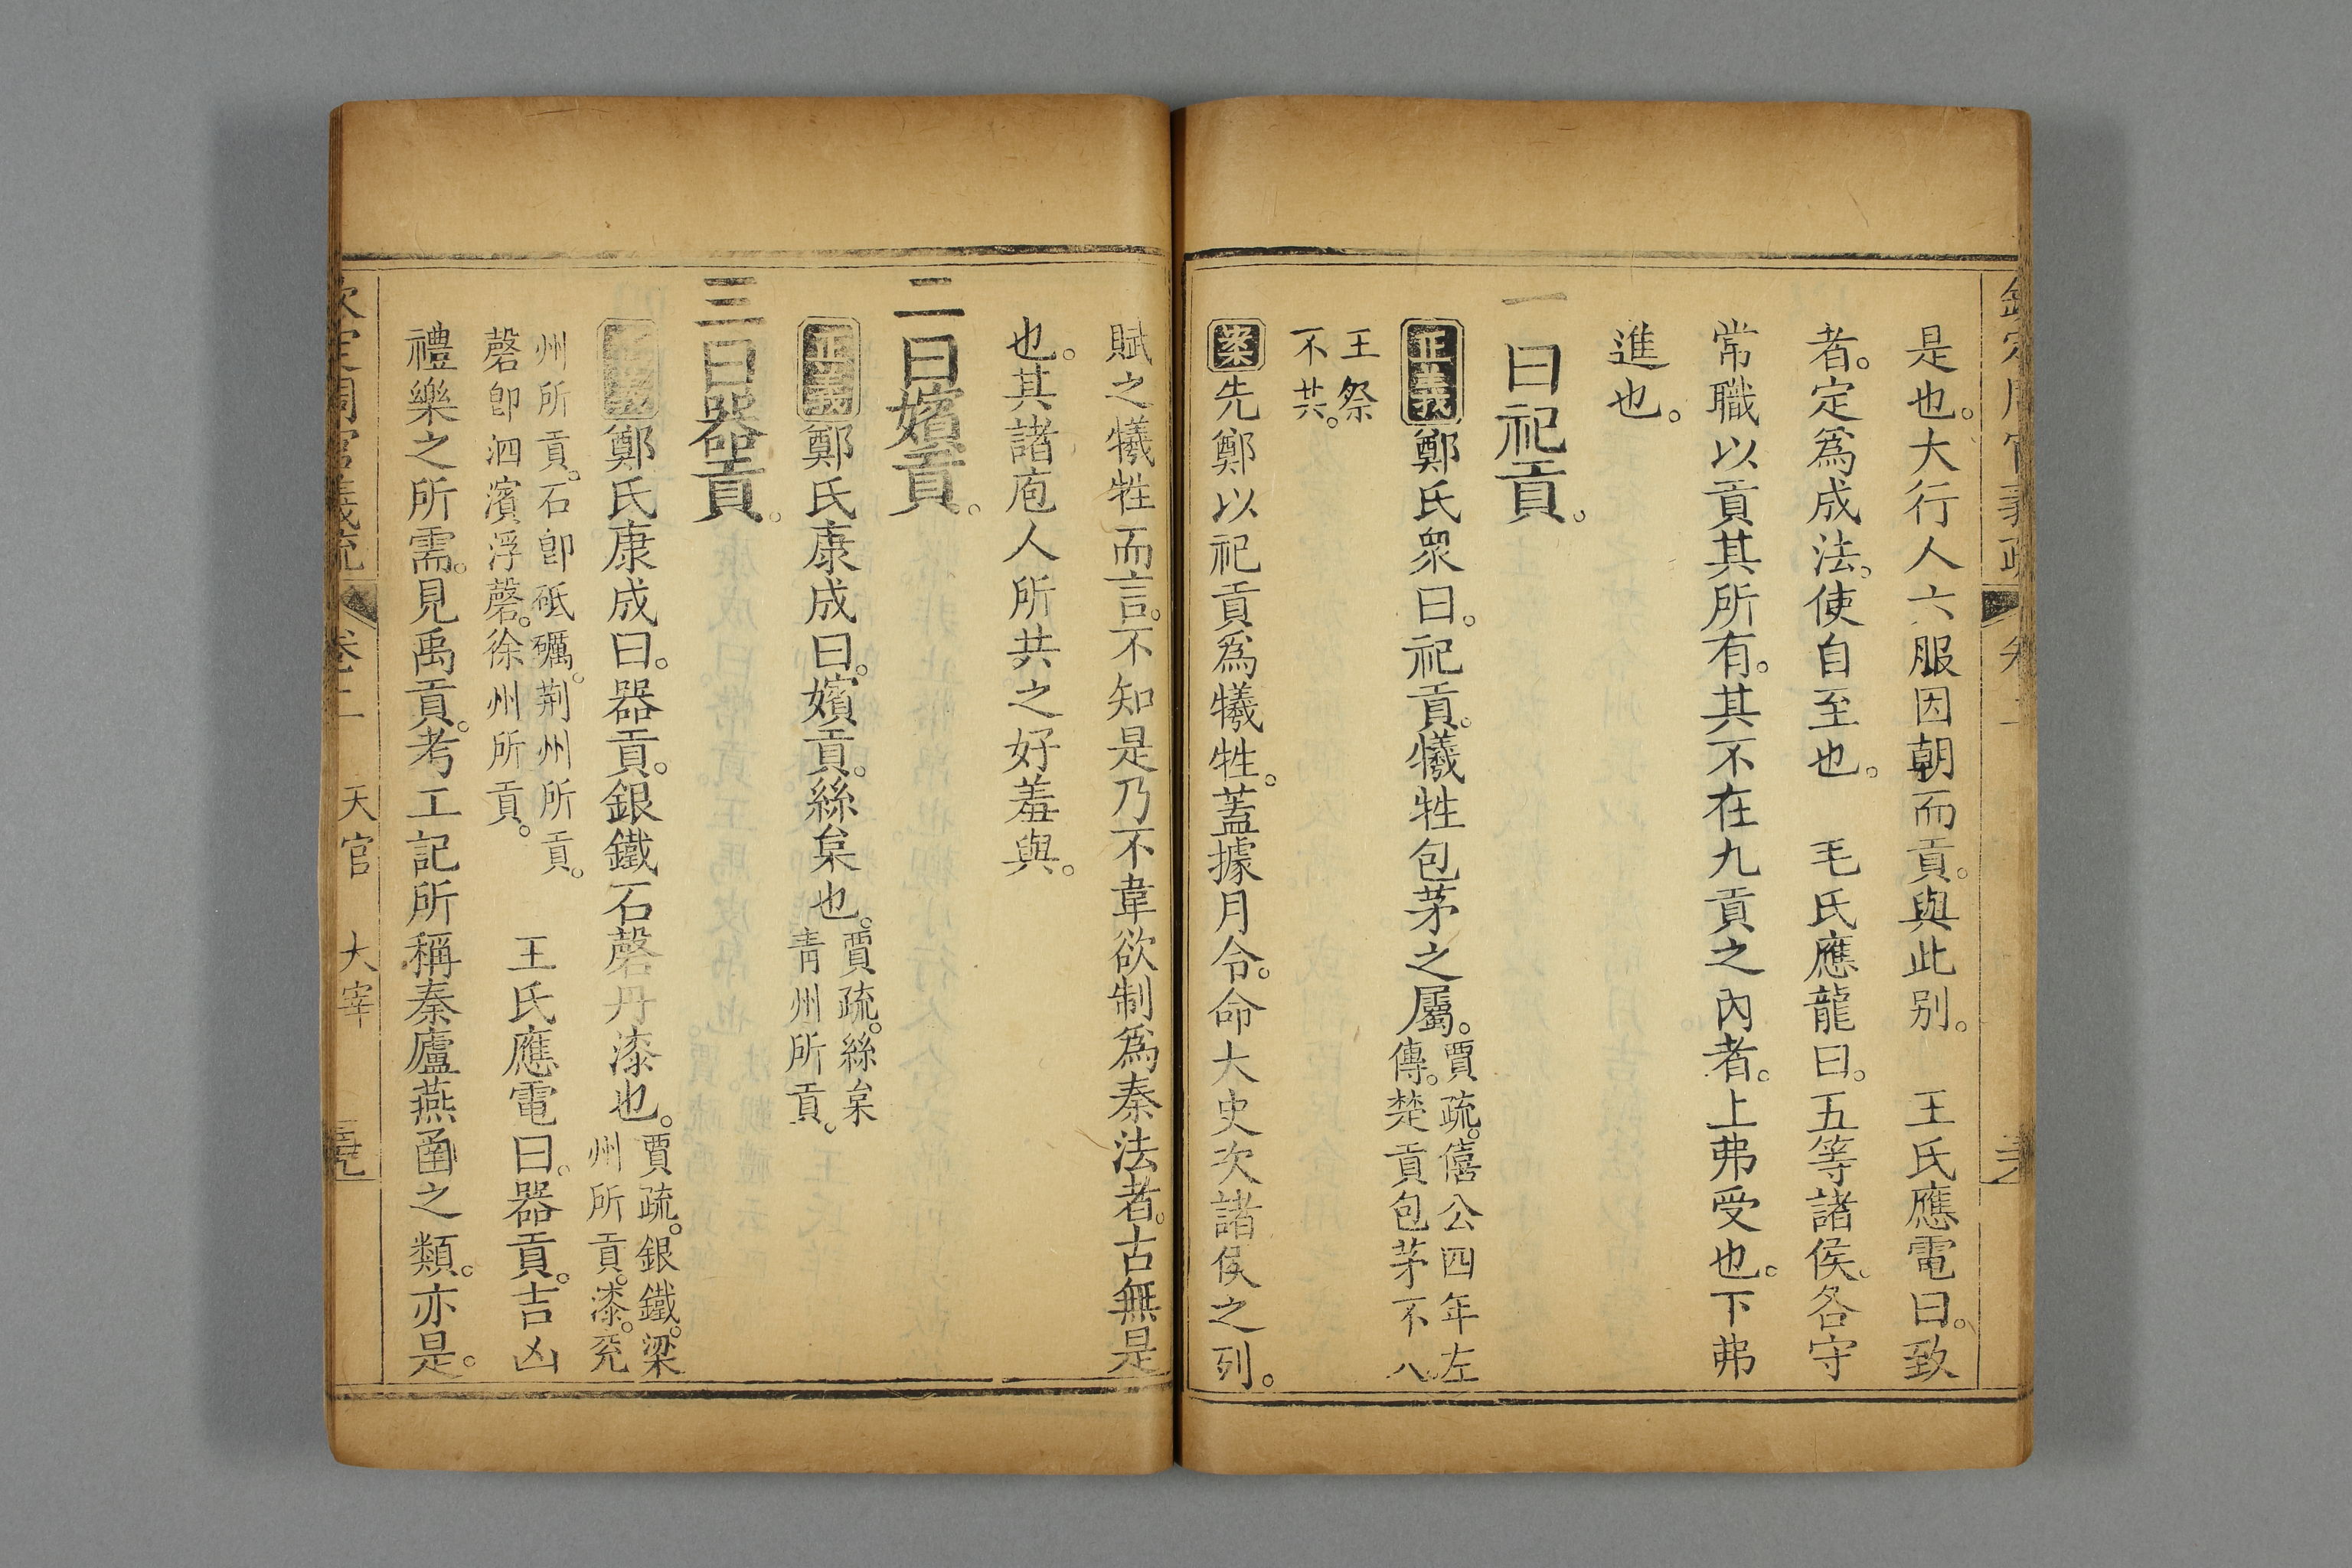 是也。大行人六服因朝而貢。與此别。　王氏應電曰。致
者。定爲成法。使自至也。　毛氏應龍曰。五等諸侯。各守
常職以貢其所有。其不在九貢之內者。上弗受也。下弗
進也。
一曰祀貢。
正義鄭氏衆曰。祀貢。犧牲包茅之屬。賈疏。僖公四年左
傳。楚貢包茅不入
王祭
不共。
案先鄭以祀貢爲犧牲。蓋據月令。命大史次諸侯之列。
賦之犧牲而言。不知是乃不韋欲制爲秦法者。古無是
也。其諸庖人所共之好羞與。
二曰嬪貢。
正義鄭氏康成曰。嬪貢。絲枲也。賈疏。絲枲
青州所貢。
三曰器貢。
正義鄭氏康成曰。器貢。銀鐵石磬丹漆也。賈疏。銀鐵。梁
州所貢。漆。兖
州所貢。石卽砥礪。荆州所貢。
磬卽泗濱浮磬。徐州所貢。
王氏應電曰。器貢。吉凶
禮樂之所需。見禹貢。考工記所稱秦廬燕函之類。亦是。
欽定周官義疏 卷二 天官 大宰